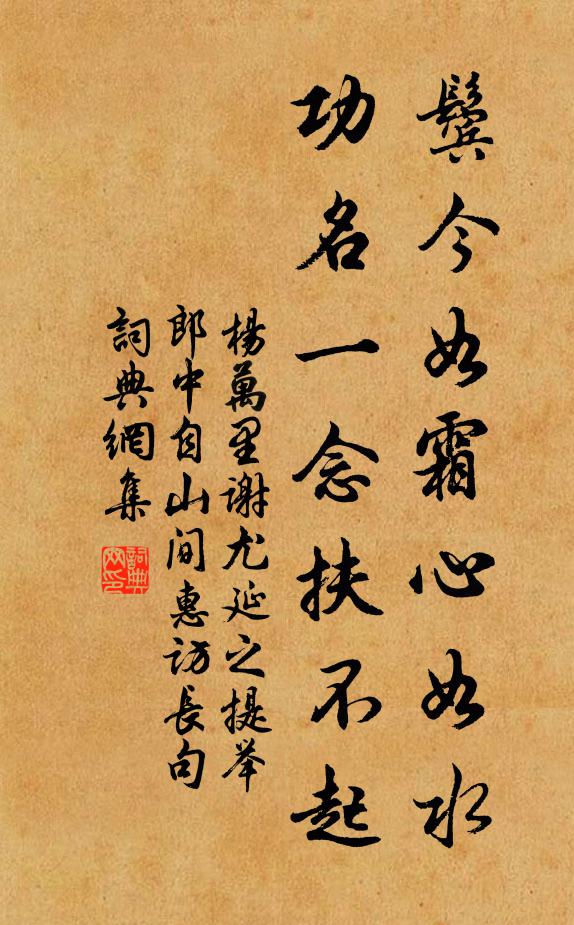 鬓今如霜心如水
功名一念扶不起
楊萬里谢尤延之提举
郎中自山间惠访長句
詞典網集
詞典网印